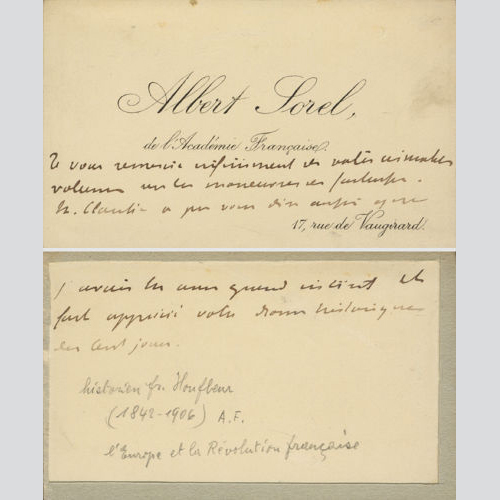 Albert Sorel,
de l'Académie Française.
Je vous remercie infiniment de votre aimable
volume sur les manoeuvres de
M. Claretie a pu vous dire aussi que
17, rue de Vaugirard.
j'avais lu avec grand intérêt et
fort apprécié votre drame historique
des Cent jours.
historien fr. Honfleur
(1842-1906) A.F.
l'Europe et la Révolution française